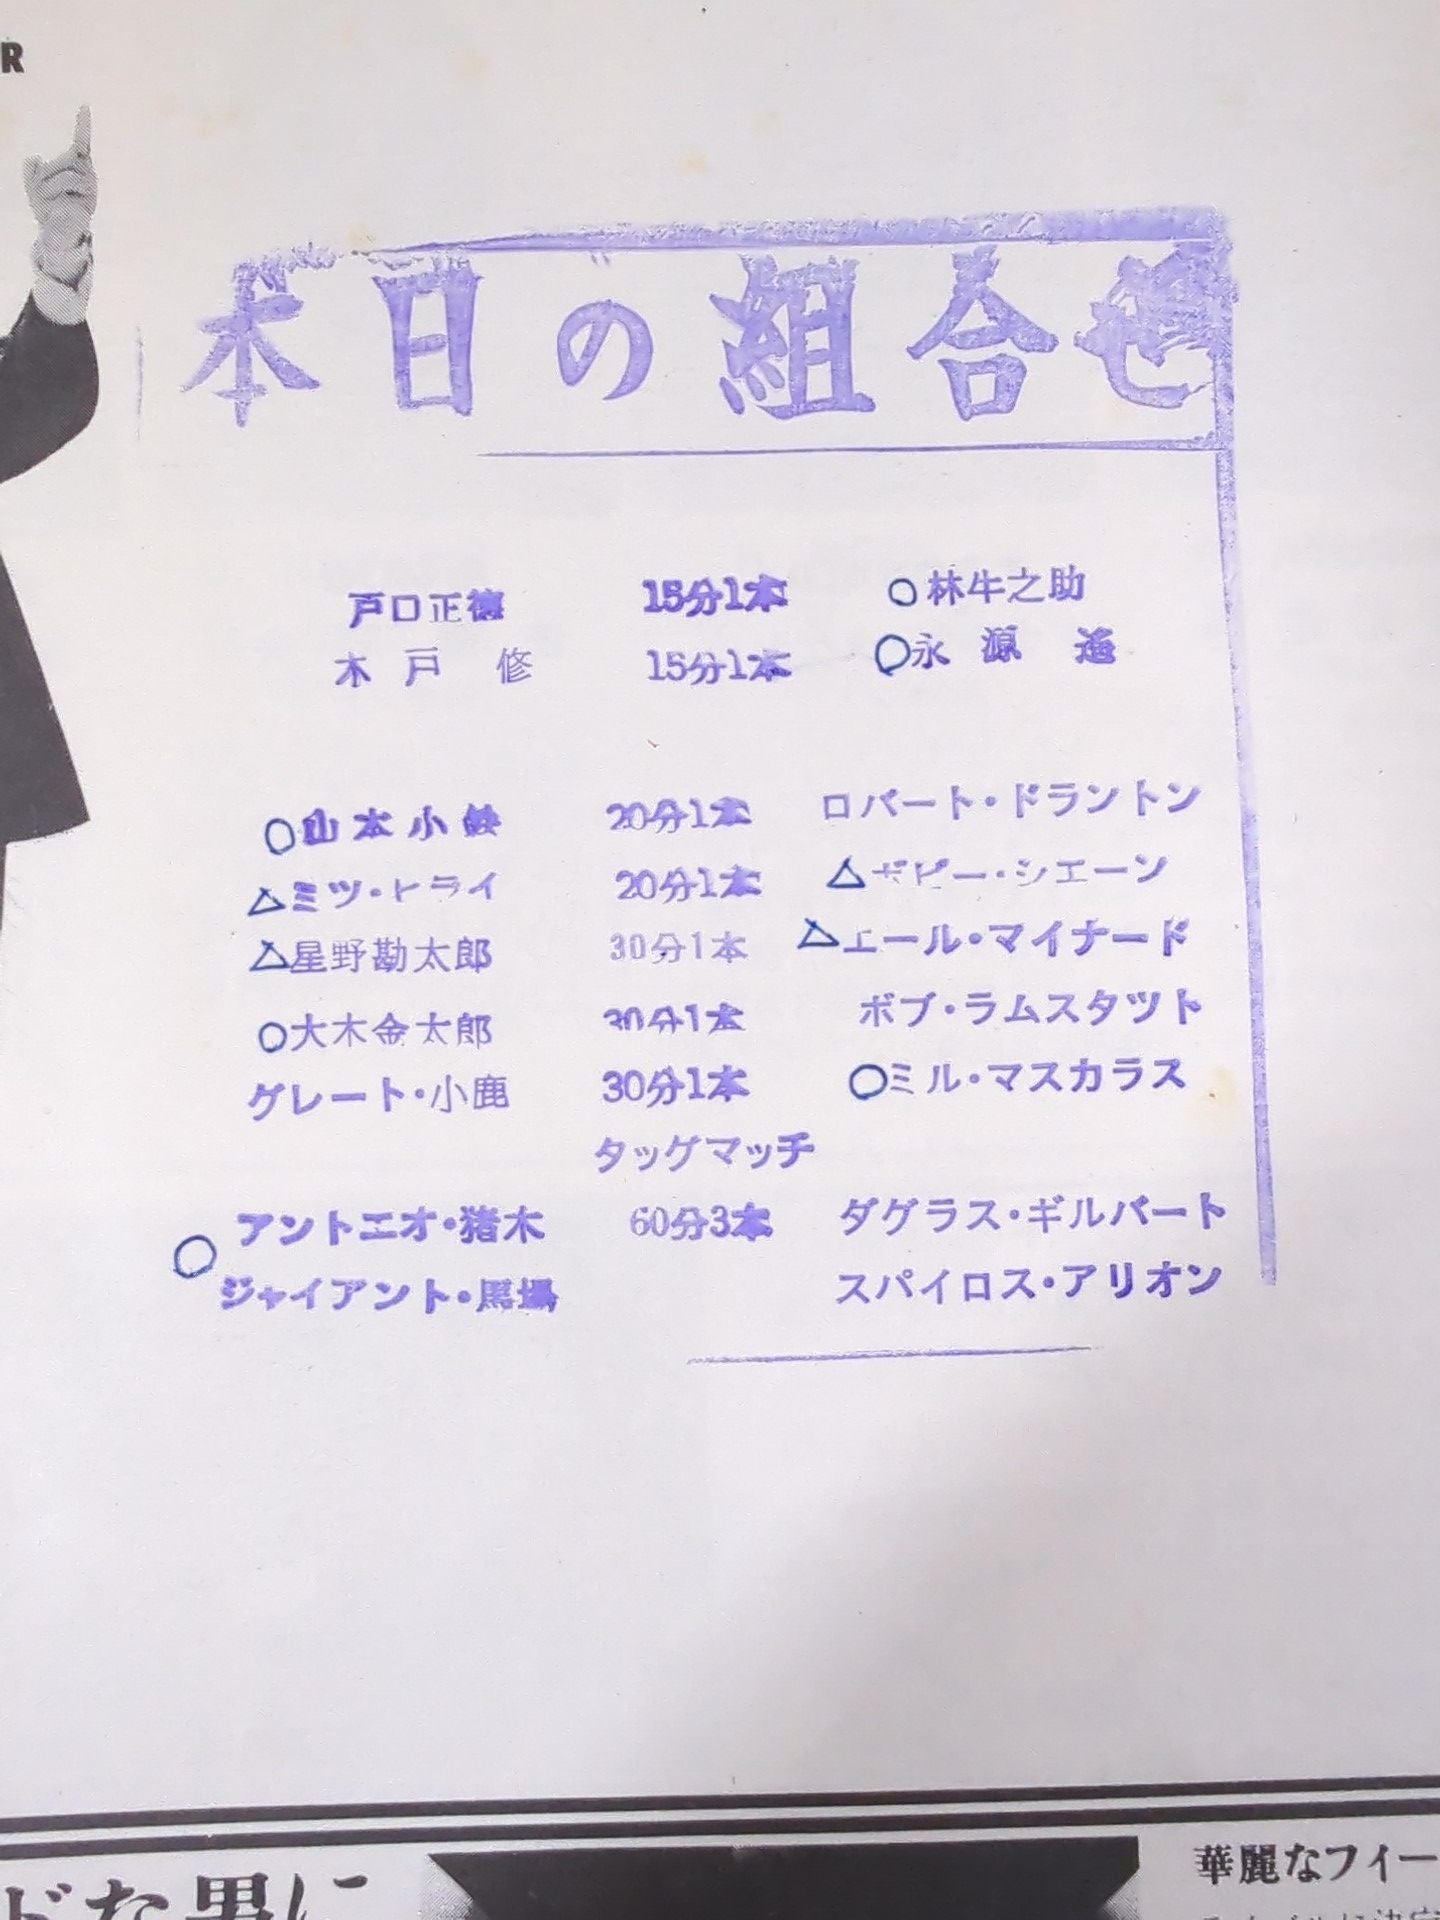 R
本日の組合せ
戸口正徳 15分1本 ○林牛之助
木戸 修 15分1本 ○永源 遙
○山本小鉄 20分1本 ロバート・ドラントン
△ミツ・ヒライ 20分1本 △ボビー・シエーン
△星野勘太郎 30分1本 △エール・マイナード
○大木金太郎 30分1本 ボブ・ラムスタツト
グレート・小鹿 30分1本 ○ミル・マスカラス
タッグマッチ
○アントニオ・猪木 60分3本 ダグラス・ギルバート
ジャイアント・馬場 スパイロス・アリオン
ドな男に
華麗なフィー